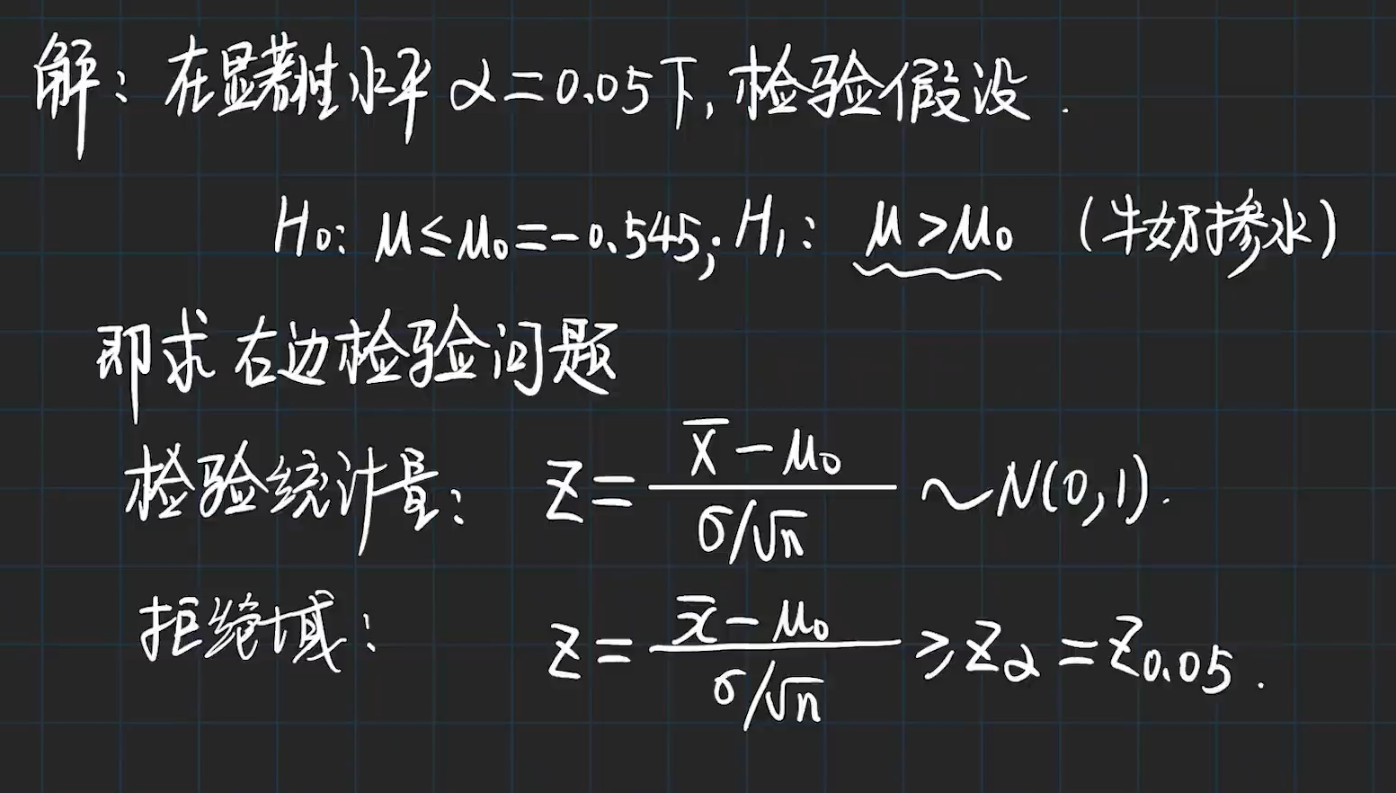 解：在显著性水平 α=0.05下，检验假设.
H₀: μ≤μ₀=-0.545; H₁: μ>μ₀ (牛奶掺水)
即求右边检验问题
检验统计量： Z = (X̄-μ₀)/(σ/√n) ~N(0,1).
拒绝域： Z = (x̄-μ₀)/(σ/√n) ≥ Z_α = Z_0.05.